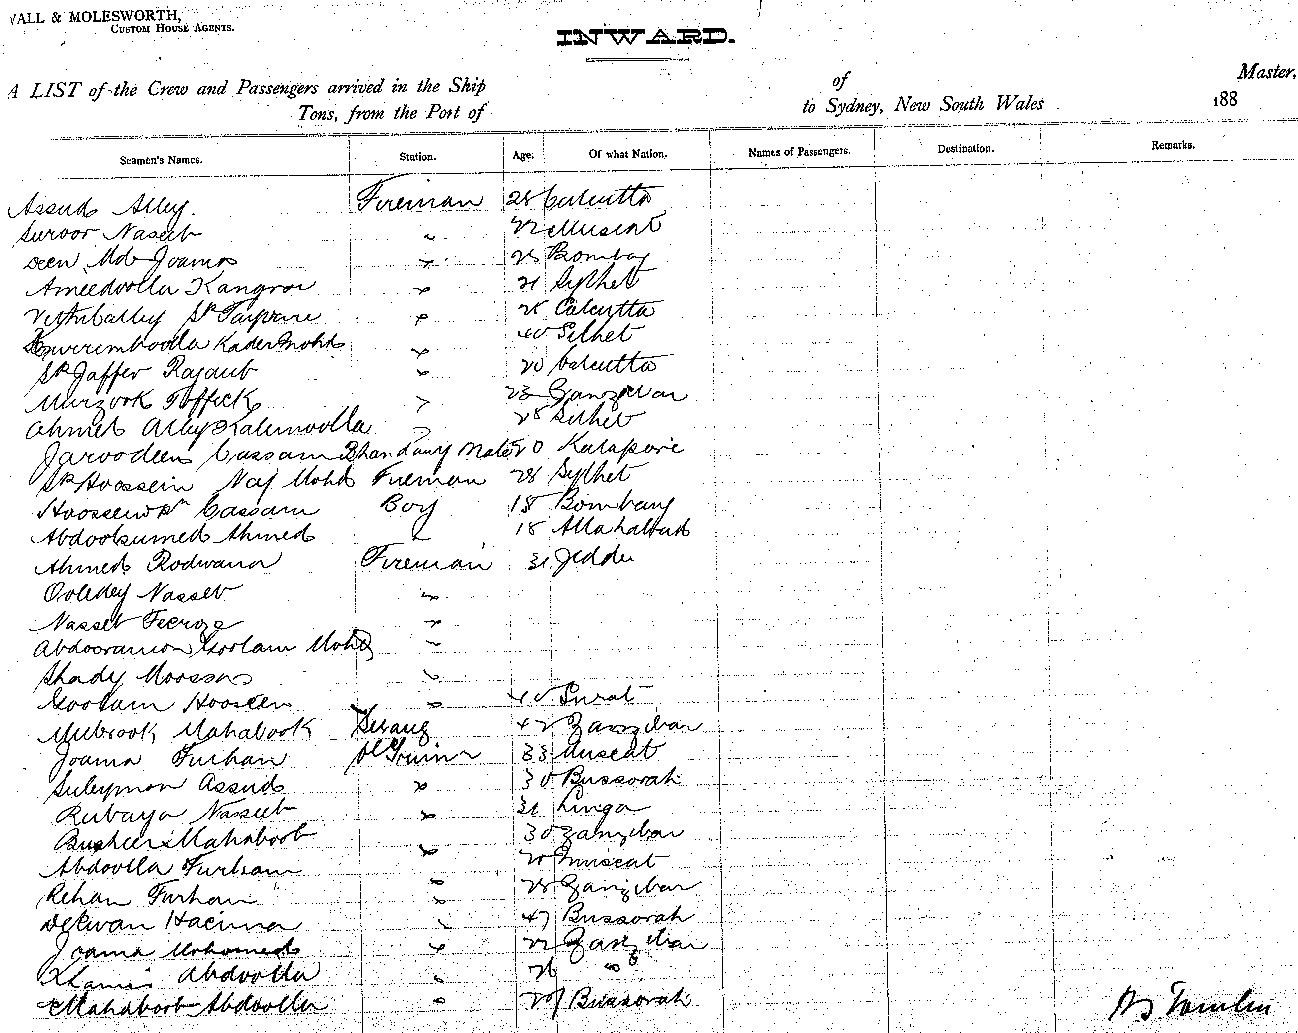 WALL & MOLESWORTH,
CUSTOM HOUSE AGENTS.
INWARD.
A LIST of the Crew and Passengers arrived in the Ship of Master,
Tons, from the Port of to Sydney, New South Wales 188
Seamen's Names. Station. Age. Of what Nation. Names of Passengers. Destination. Remarks.
Assud Alley. Fireman 28 Calcutta
Suroor Naseeb " 22 Muscat
Deen Md Joama " 25 Bombay
Ameedoolla " 21 Sylhet
" 25 Calcutta
Kader Mohd " 40 Silhet
Sk Jaffer Rajaub " 20 Calcutta
Murzook Toffick " 23 Zanzibar
Ahmed Alley Kalimoolla " 28 Silhet
Jaroodeen Cassam Bhandary Mate 50
Sk Hoossein Mohd Fireman 28 Sylhet
Cassam Boy 18 Bombay
Abdoolsumed Ahmed " 18 Allahabad
Ahmed Rodwana Fireman 31 Jedda
Nasseb "
Nasseb Feeroze "
Goolam Mohd "
Shady Moossa "
Goolam Hoosein " 40 Surat
Mubrook Mahabook Serang 42 Zanzibar
Joama Furhan 33 Muscat
Suleyman Assud " 30 Bussorah
Rubaya Nasseeb " 31 Linga
Busheer Mahaboob " 30 Zanzibar
Abdoolla Furham " 20 Muscat
Rehan Furhan " 28 Zanzibar
Hacima " 47 Bussorah
Joama Mohomed " 22 Zanzibar
Khamis Abdoolla " 26 "
Mahaboob Abdoolla " Bussorah
Tomlin